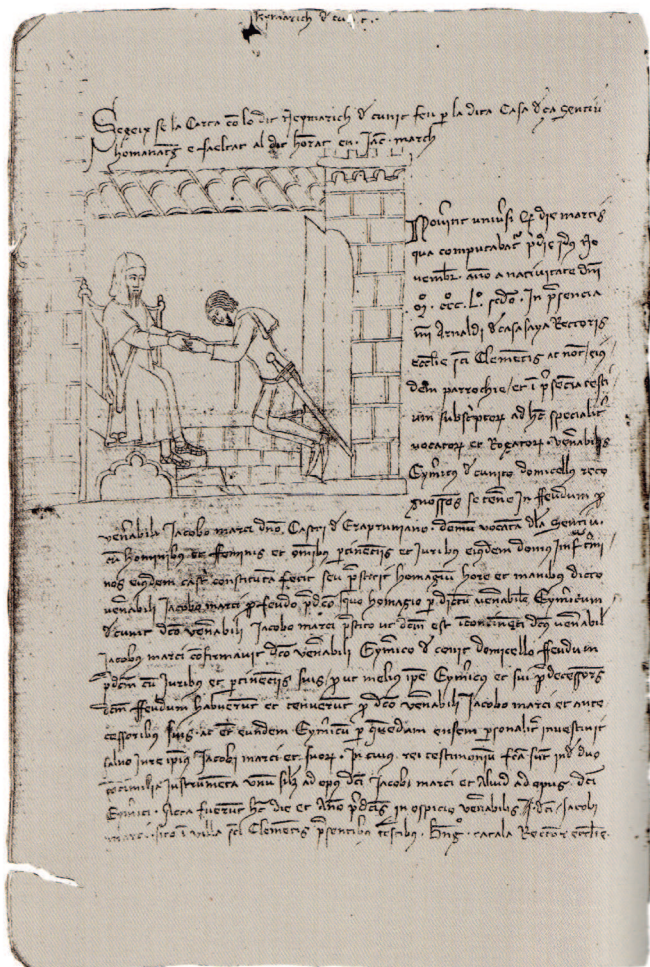 Heymarich d cunit.
Segeix se la Carta cõ lo dit Heymarich d cunit feu p la dita Casa d ça Sentiu
homanatg e faeltat al dit hõrat en Jac. march
Novint univsi q die martis
qua computabat pdie id9 No
vembr. año a nativitate dñi
mº. cccº. Lº. scdo. In psencia
mi Arnaldi d casasaya Rectoris
Ecclie sci Clemetis ac not ei9
dem parrochie et i psecia testi
um subsptor ad hc specialit
vocator et Rogator. venabilis
Eymic9 d cunito domicellus reco
gnossẽs se tene in ffeudum p
venabili Jacobo marci dno. Castri d Eraprunyano. domu vocata dla Sentiu.
cu hominibus et feminis et omibus ptinecijs et Juribus eiusdem domus infra tmi
nos eiusdem castri constituta fecit seu pstitit homagiu hore et manibus dicto
venabili Jacobo marci p feudo pdco. quo homagio p dictu venabile Eymicum
d cunit dco venabili Jacobo marci pstito ut dcm est incontineti dcus venabil
Jacobus marci cofirmavit dco venabili Eymico d cunit domicello ffeudum
pdcm cu Juribus et ptinecijs suis put melius ipe Eymic9 et sui pdecessors
dcm ffeudum habuerut et tenuerut p dco venabili Jacobo marci et ante
cessoribus suis. ac et eundem Eymicu p quedam ensem psonalit investivit
salvo iure ipius Jacobi marci et suor. In cuius rei testimoniu fca sut inde duo
cosimilia Instrumeta unu silz ad opus dci Jacobi marci et aliud ad opus dci
Eymici. Acta fuerut hc die et Año pdcis in ospicio venabilis dci Jacobi
marci. sito i villa sci Clemetis psentibus testibus. catala Rectore ecclie.